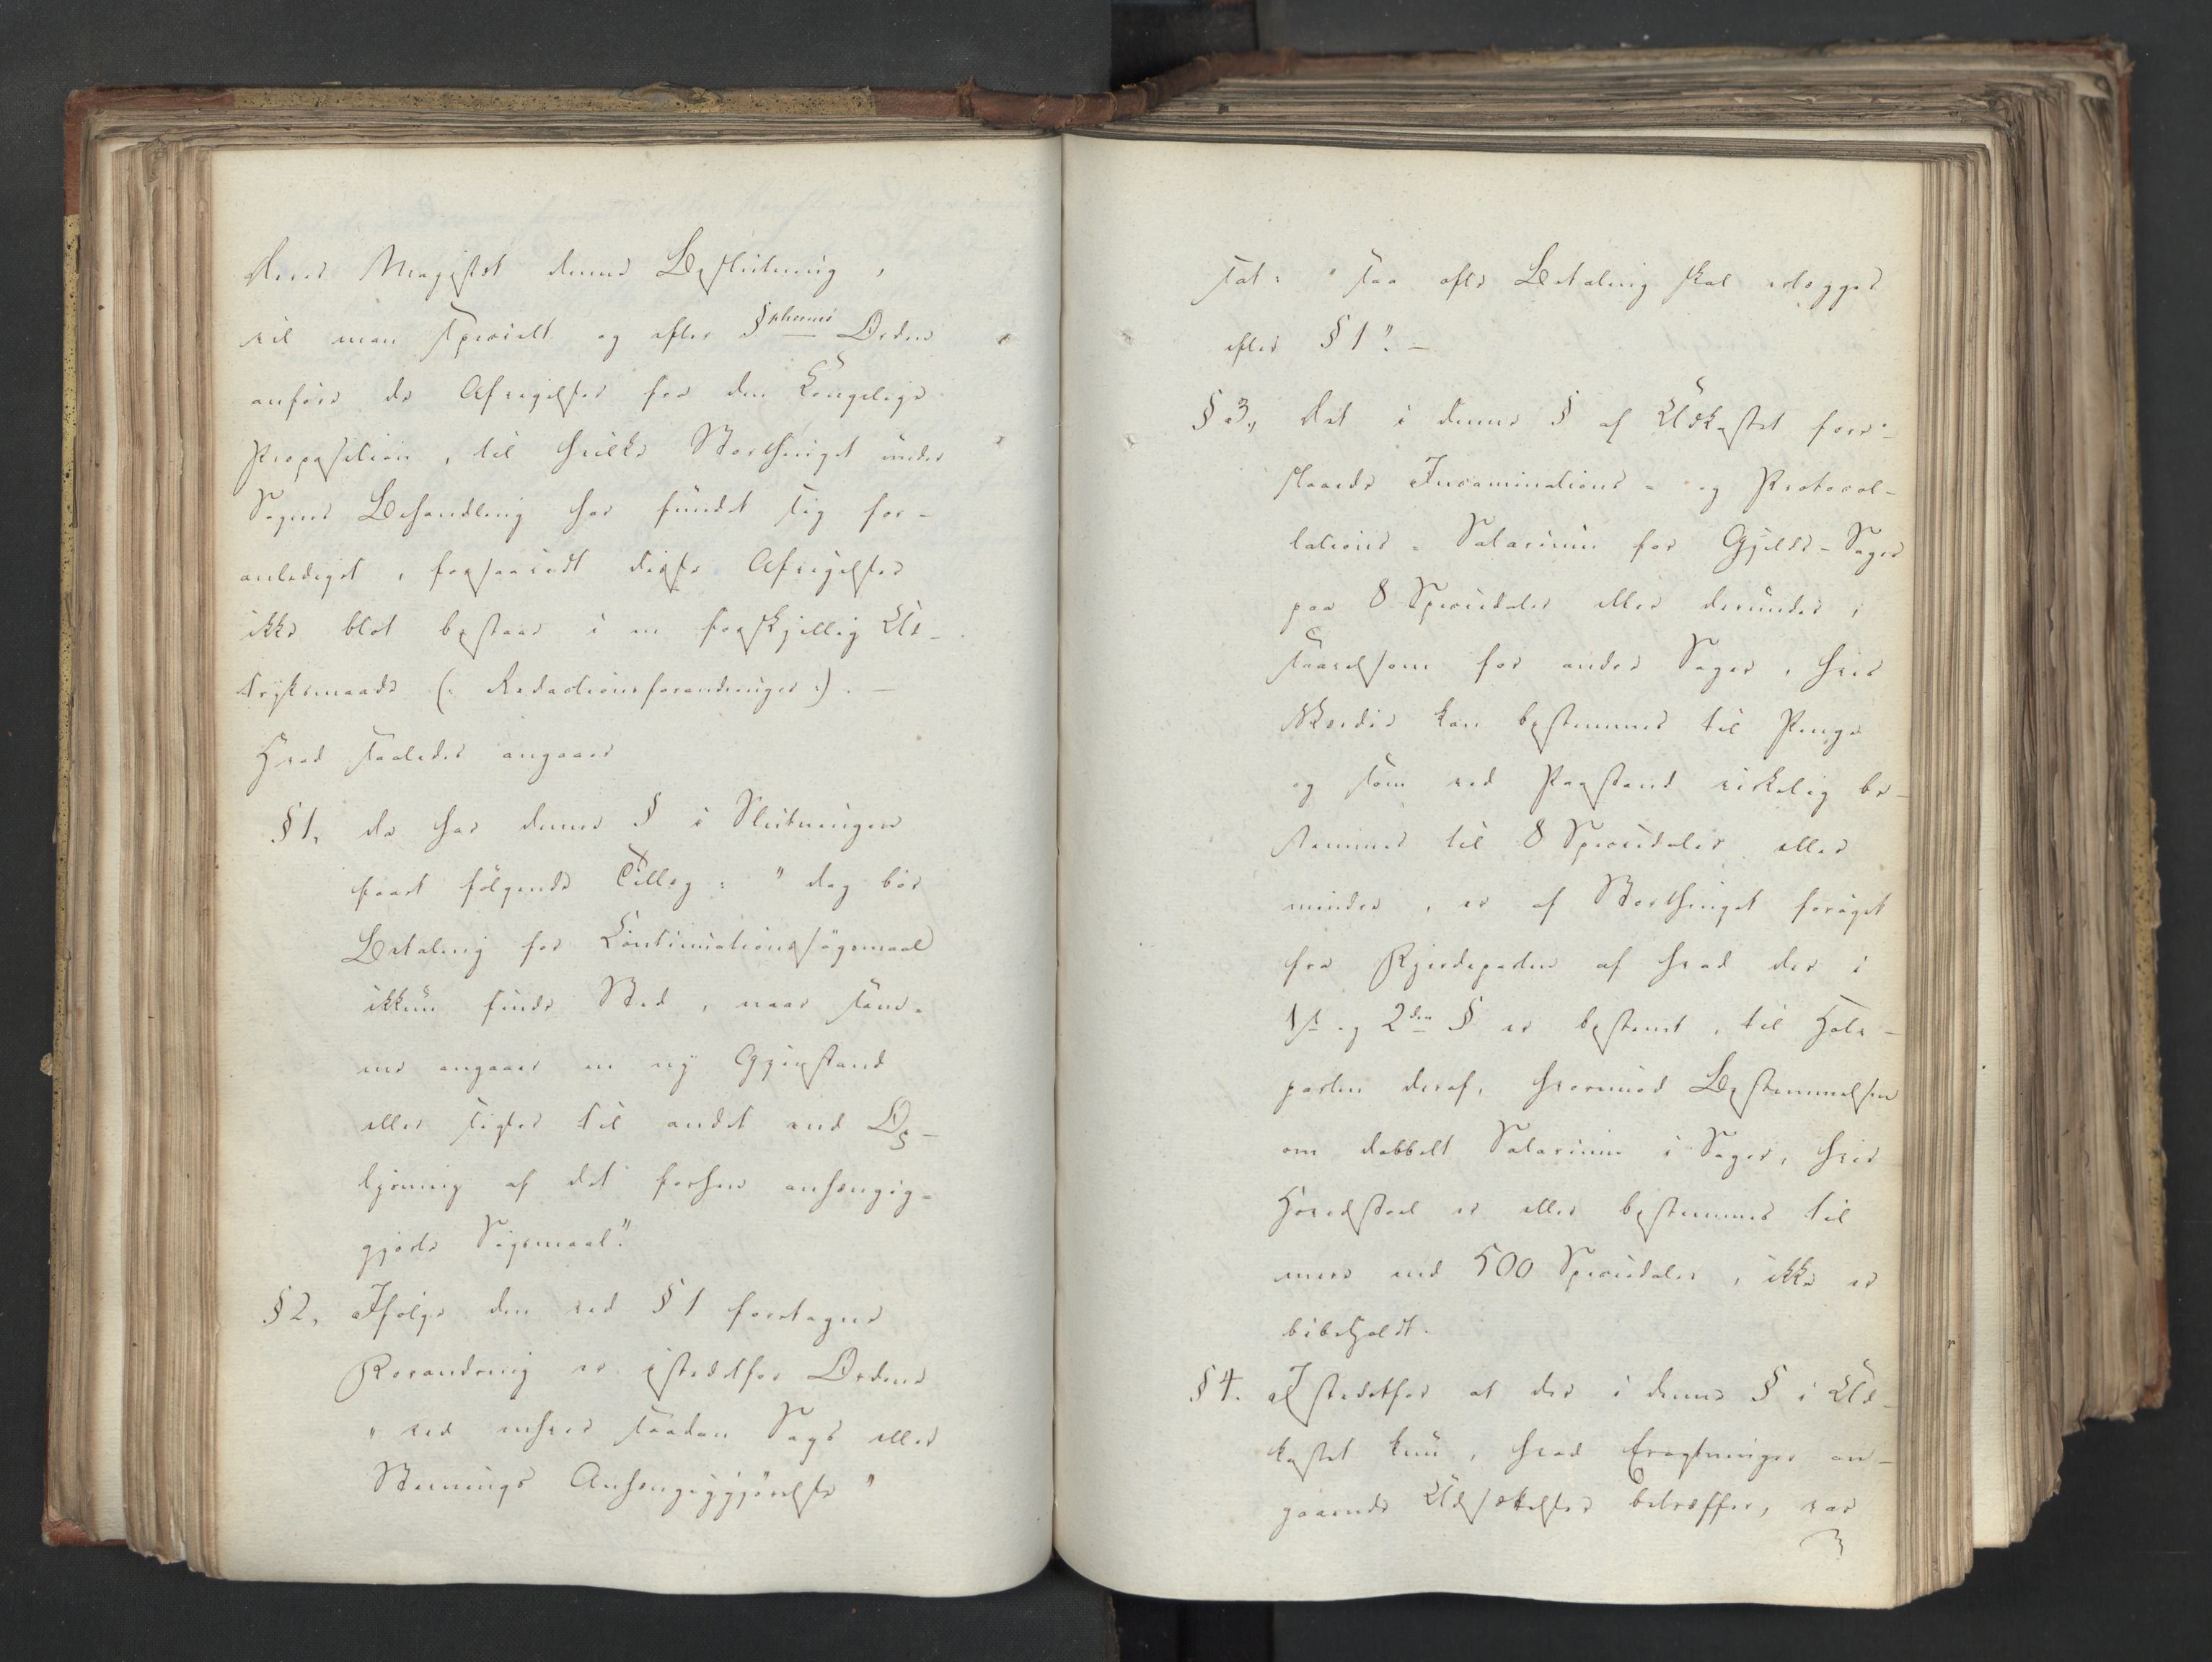 Deres Majestæt denne Beslutning,
vil man specielt og efter §phernes Orden
anføre de Afvigelser fra den Kongelige
Proposition, til hvilke Storthinget under
Sagens Behandling har fundet sig for-
anlediget, forsaavidt disse Afvigelser
ikke blot bestaae i en forskjellig Ud-
tryksmaade (: Redactionsforandringer :). —
Hvad saaledes angaaer
§ 1, da har denne § i Slutningen
faaet følgende Tillæg: "dog bør
Betaling for Continuationssøgsmaal
ikkun finde Sted, naar samme
angaaer en ny Gjenstand
eller sigter til andet end Op-
lysning af det forhen anhængig-
gjorte Søgsmaal."
§ 2, Ifølge den ved § 1 foretagne
Forandring er istedetfor Ordene
"ved enhver saadan Sags eller
Stevnings Anhængiggjørelse"
sat: "saa ofte Betaling skal erlægges
efter § 1". —
§ 3, Det i denne § af Udkastet fore-
slaaede Incaminations- og Protocol-
lations-Salarium for Gjelds-Sager
paa 8 Speciedaler eller derunder,
saavelsom for andre Sager, hvis
Værdie kan bestemmes til Penge
og som ved Paastand virkelig be-
stemmes til 8 Speciedaler eller
mindre, er af Storthinget forøget
fra Fjerdeparten af hvad der i
1ste og 2den § er bestemt, til Halv-
parten deraf, hvorimod Bestemmelsen
om dobbelt Salarium i Sager, hvis
Hovedstoel er eller bestemmes til
mere end 500 Speciedaler, ikke er
bibeholdt.
§ 4. Istedetfor at der i denne § i Ud-
kastet kun, hvad Eragtninger an-
gaaende Udsættelser betræffer, var